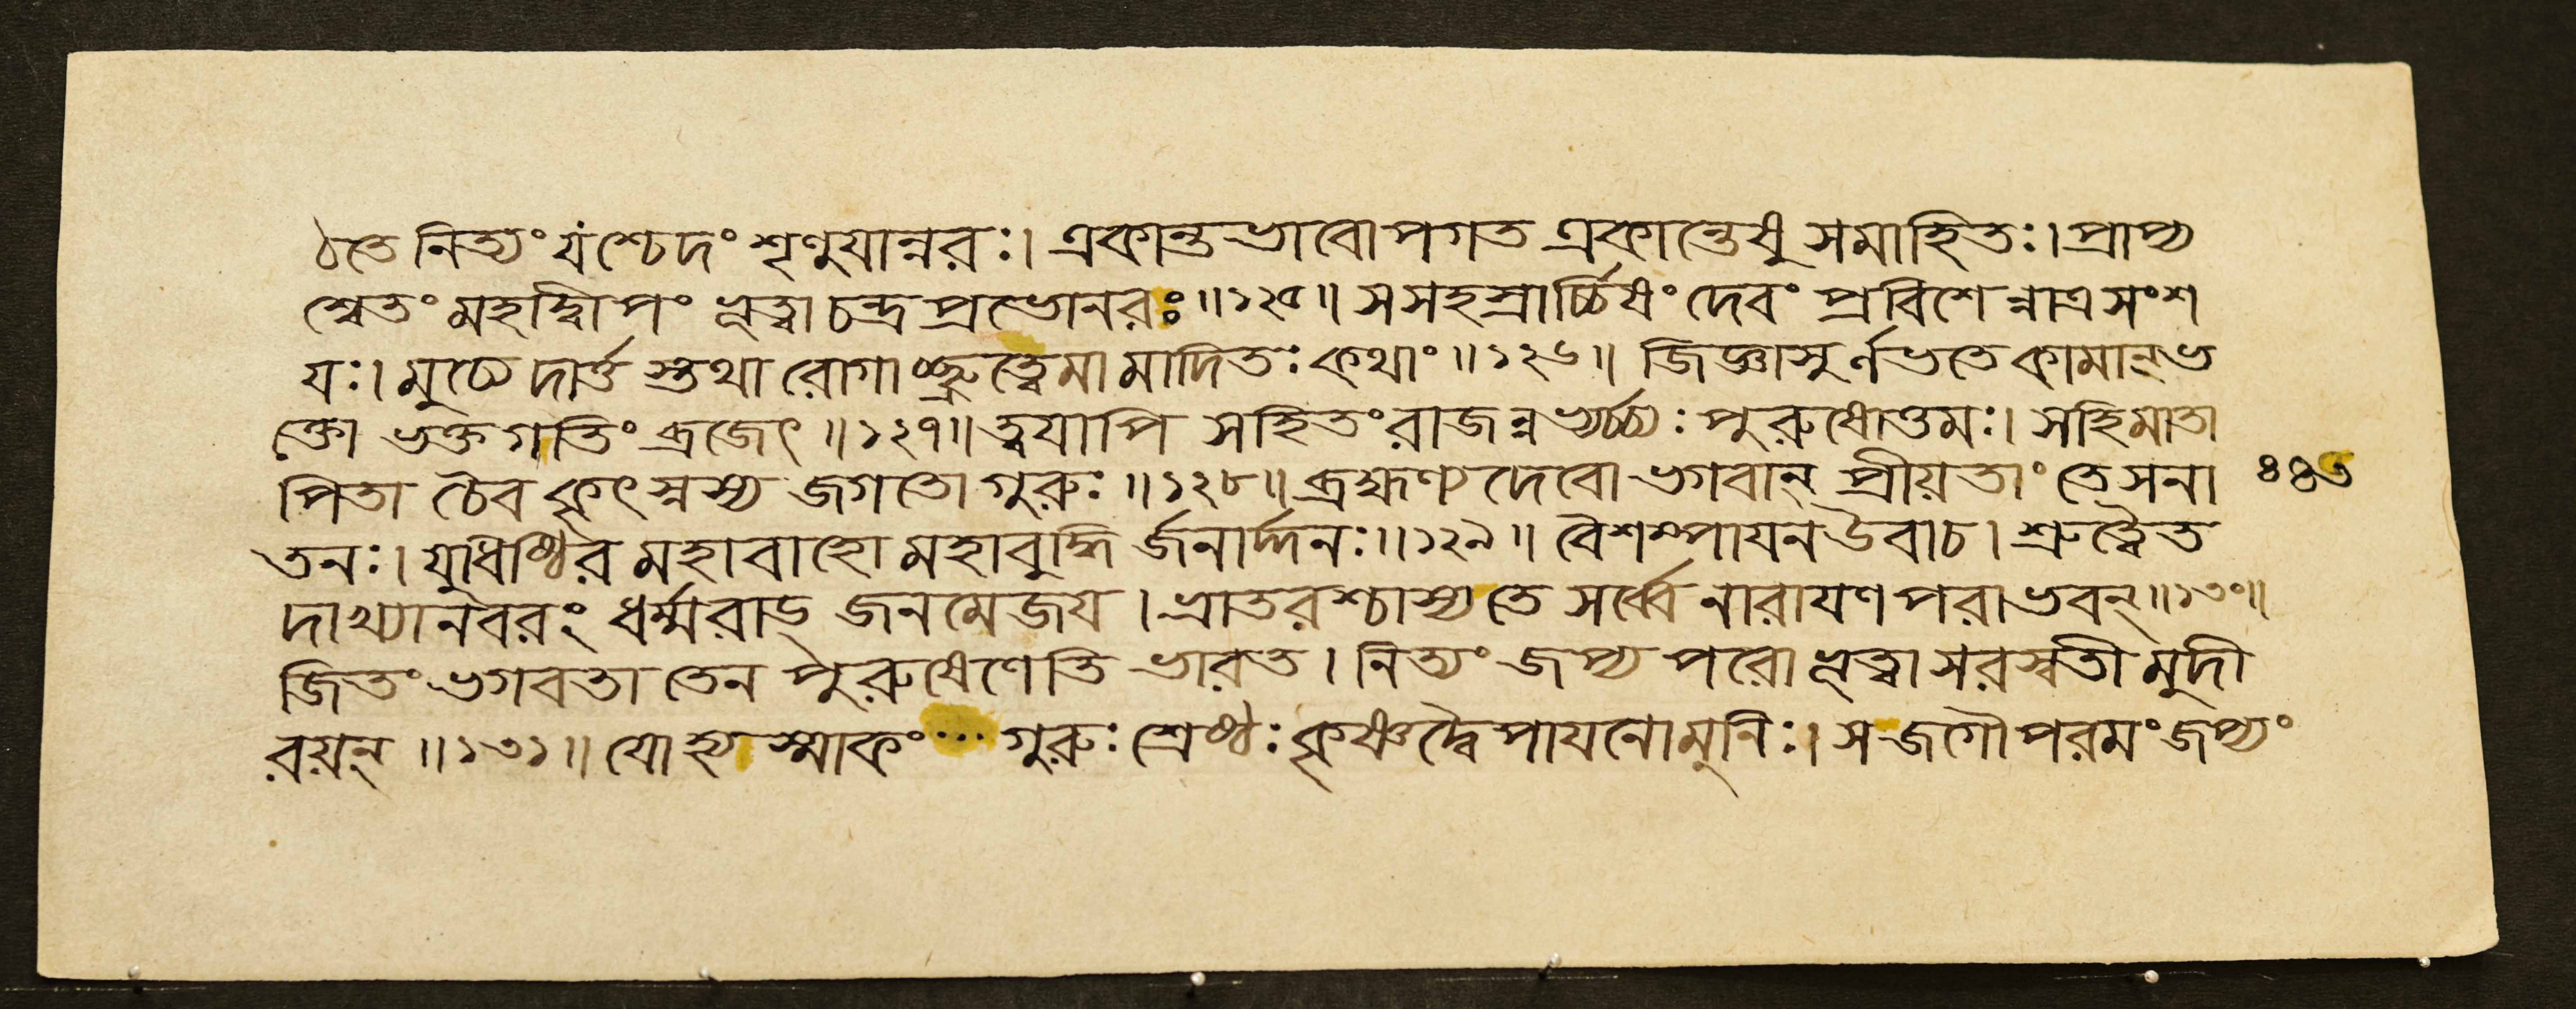 ঠতে নিত্যং যশ্চেদং শৃণুযান্নরঃ। একান্তভাবোপগত একান্তেষু সমাহিতঃ। প্রাপ্য
শ্বেতং মহদ্দ্বিপং ভূত্বা চন্দ্রপ্রভোনরঃ॥১২৫॥ স সহস্রার্চ্চিষং দেবং প্রবিশেন্নাত্র সংশ
যঃ। মুচ্চেদার্ত্ত স্তথা রোগাচ্ছ্রুত্বেমামাদিতঃ কথাং॥১২৬॥ জিজ্ঞাসুর্লভতে কামান্ ভ
ক্তো ভক্তগতিং ব্রজেৎ॥১২৭॥ ত্বযাপি সহিতং রাজন্নভ্যর্চ্চ্যঃ পুরুষোত্তমঃ। স হি মাতা
পিতা চৈব কৃৎস্নস্য জগতো গুরুঃ॥১২৮॥ ব্রহ্মণ্যদেবো ভগবান্ প্রীয়তাং তে সনা
৪৪৩
তনঃ। যুধিষ্ঠির মহাবাহো মহাবুদ্ধি র্জনার্দ্দনঃ॥১২৯॥ বৈশম্পাযন উবাচ। শ্রুত্বৈত
দাখ্যানবরং ধর্ম্মরাড্ জনমেজয। ভ্রাতরশ্চাস্য তে সর্ব্বে নারাযণপরাভবন্॥১৩০॥
জিতং ভগবতা তেন পুরুষেণেতি ভারত। নিত্যং জপ্য পরো ভূত্বা সরস্বতীমুদী
রয়ন্॥১৩১॥ যো হ্যস্মাকং ... গুরুঃ শ্রেষ্ঠঃ কৃষ্ণদ্বৈপাযনো মুনিঃ। স জগৌ পরমং জপ্যং